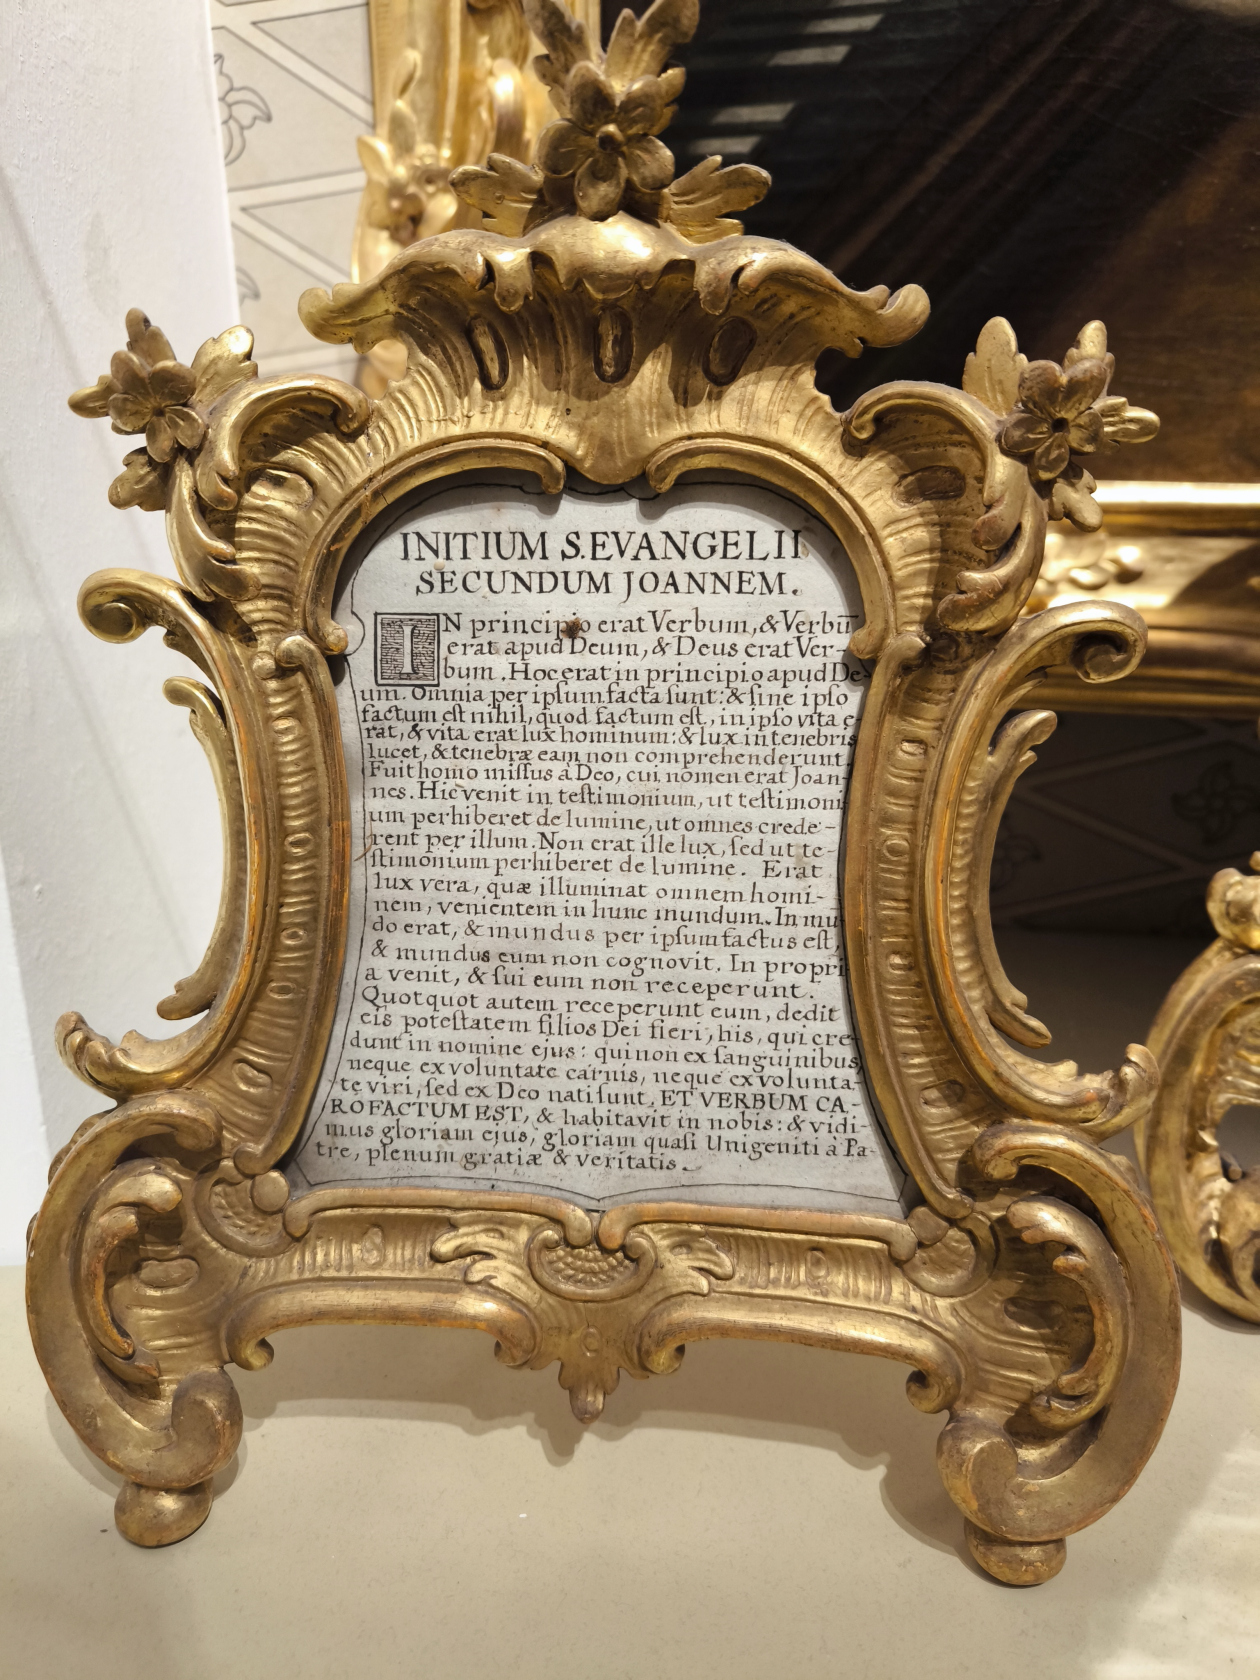 INITIUM S. EVANGELII
SECUNDUM JOANNEM.
IN principio erat Verbum, & Verbū
erat apud Deum, & Deus erat Ver-
bum. Hoc erat in principio apud De-
um. Omnia per ipſum facta ſunt: & ſine ipſo
factum eſt nihil, quod factum eſt, in ipſo vita e-
rat, & vita erat lux hominum: & lux in tenebris
lucet, & tenebræ eam non comprehenderunt.
Fuit homo miſſus à Deo, cui nomen erat Joan-
nes. Hic venit in teſtimonium, ut teſtimoni-
um perhiberet de lumine, ut omnes crede-
rent per illum. Non erat ille lux, ſed ut te-
ſtimonium perhiberet de lumine. Erat
lux vera, quæ illuminat omnem homi-
nem, venientem in hunc mundum. In mu
do erat, & mundus per ipſum factus eſt,
& mundus eum non cognovit. In propri-
a venit, & ſui eum non receperunt.
Quotquot autem receperunt eum, dedit
eis poteſtatem filios Dei fieri, his, qui cre-
dunt in nomine ejus: qui non ex ſanguinibus,
neque ex voluntate carnis, neque ex volunta-
te viri, ſed ex Deo nati ſunt. ET VERBUM CA-
RO FACTUM EST, & habitavit in nobis: & vidi-
mus gloriam ejus, gloriam quaſi Unigeniti à Pa-
tre, plenum gratiæ & veritatis.